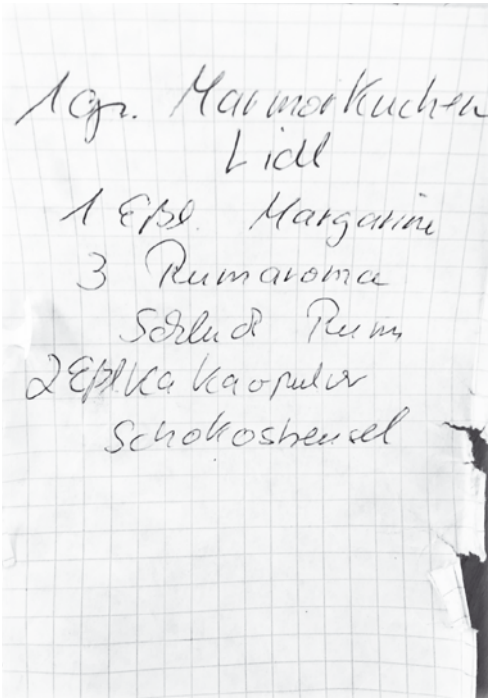 1 gr. Marmorkuchen
Lidl
1 Eßl. Margarine
3 Rumaroma
Schluck Rum
2 Eßl Kakaopulver
Schokostreusel